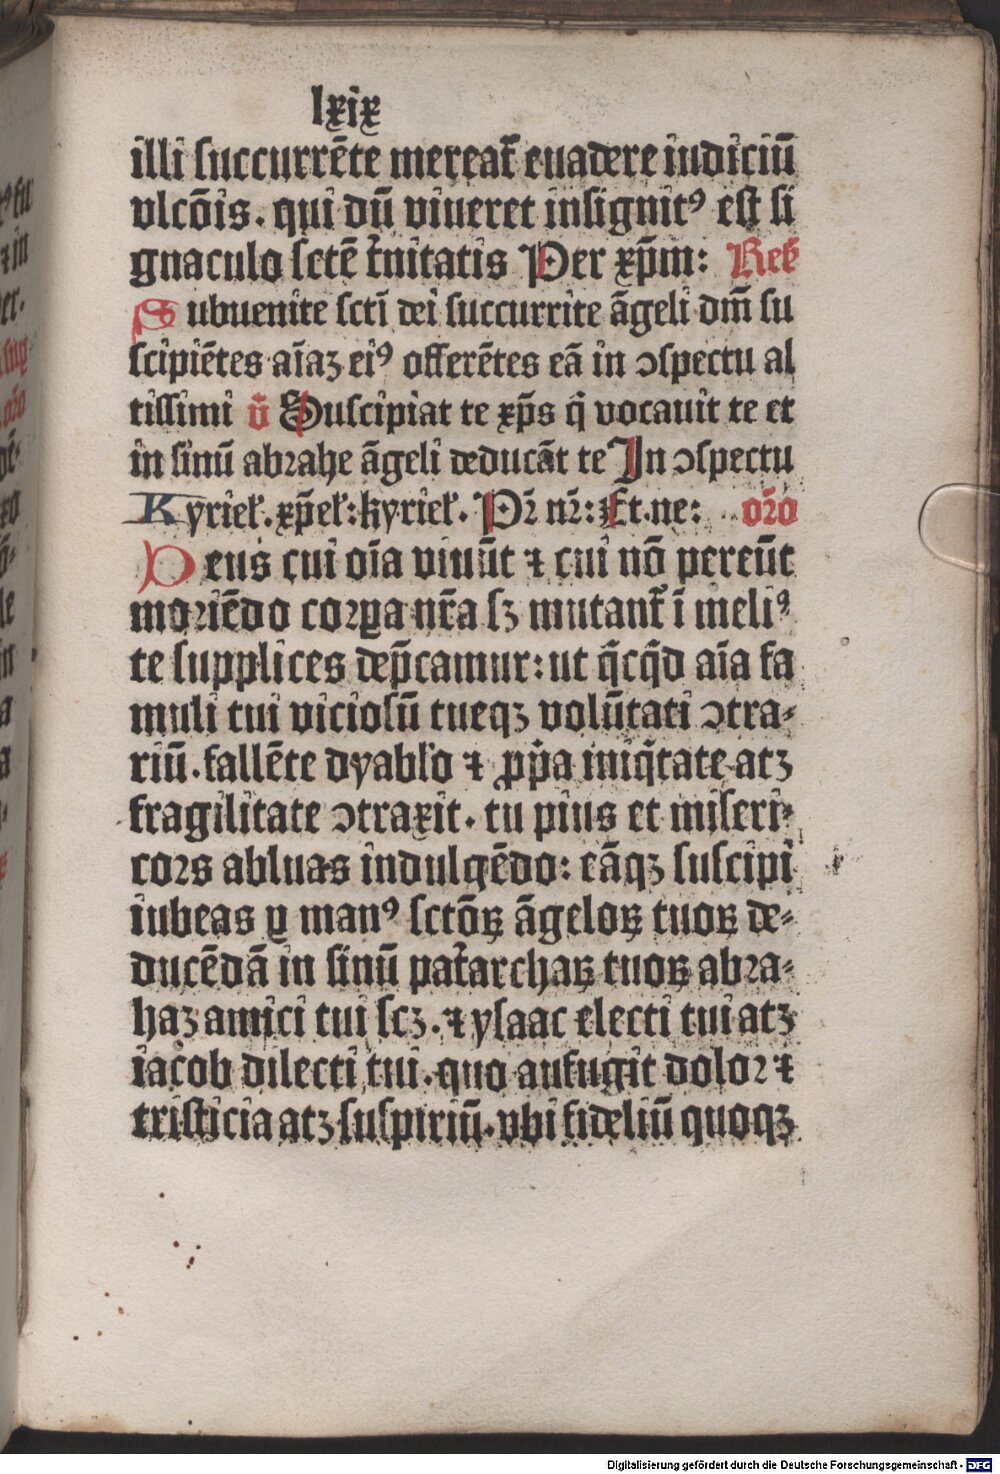 lxix
illi succurrēte mereat᷑ euadere iudiciū
vlcōis. qui dū viueret insignitꝰ est si
gnaculo sctē t᷑nitatis Per xp̄m: Reſ
Subuenite sctī dei succurrite āgeli dn̄i su
scipiētes aīaꝫ eiꝰ offerētes eā in ↄspectu al
tissimi v̄ Suscipiat te xp̄s q̄ vocauit te et
in sinū abrahe āgeli deducāt te In ↄspectu
Kyriel᷑. xp̄el᷑: kyriel᷑. Pr̄ nr̄: Et. ne: or̄o
Deus cui oīa viuūt ⁊ cui nō pereūt
moriēdo corꝑa nr̄a sꝫ mutant᷑ ī meliꝰ
te supplices dep̄camur: ut q̄cq̄d aīa fa
muli tui viciosū tueqꝫ volūtati ↄtra-
riū. fallēte dyabl᷑o ⁊ ꝓp̄a iniq̄tate atꝫ
fragilitate ↄtraxit. tu pius et miseri-
cors abluas indulgēdo: eāqꝫ suscipi
iubeas ꝑ manꝰ sctōꝝ āgeloꝝ tuoꝝ de-
ducēdā in sinū pat᷑archaꝝ tuoꝝ abra-
haꝫ amici tui scꝫ. ⁊ ysaac electi tui atꝫ
iacob dilecti tui. quo aufugit dolor ⁊
tristicia atꝫ suspiriū. vbi fideliū quoqꝫ
Digitalisierung gefördert durch die Deutsche Forschungsgemeinschaft - DFG